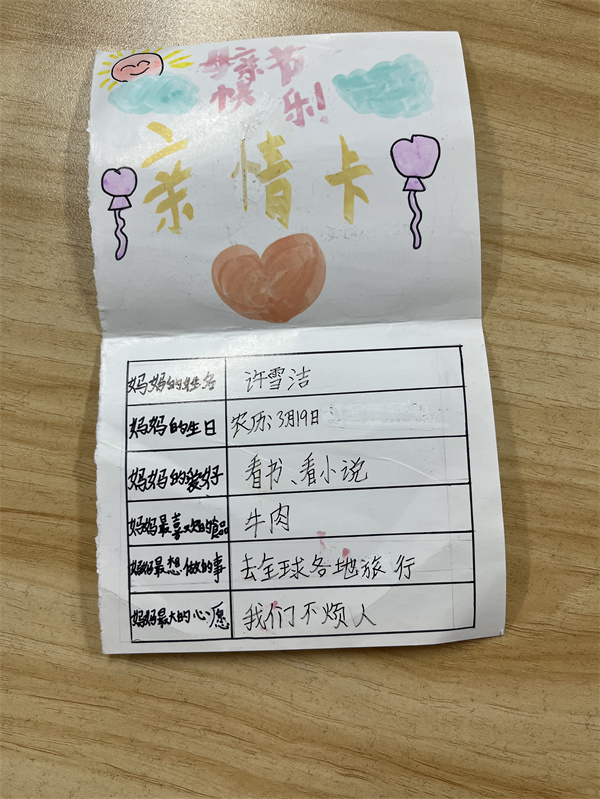 母亲节
快乐!
亲情卡
妈妈的姓名 许雪洁
妈妈的生日 农历:3月19日
妈妈的爱好 看书、看小说
妈妈最喜欢的食品 牛肉
妈妈最想做的事 去全球各地旅行
妈妈最大的心愿 我们不烦人